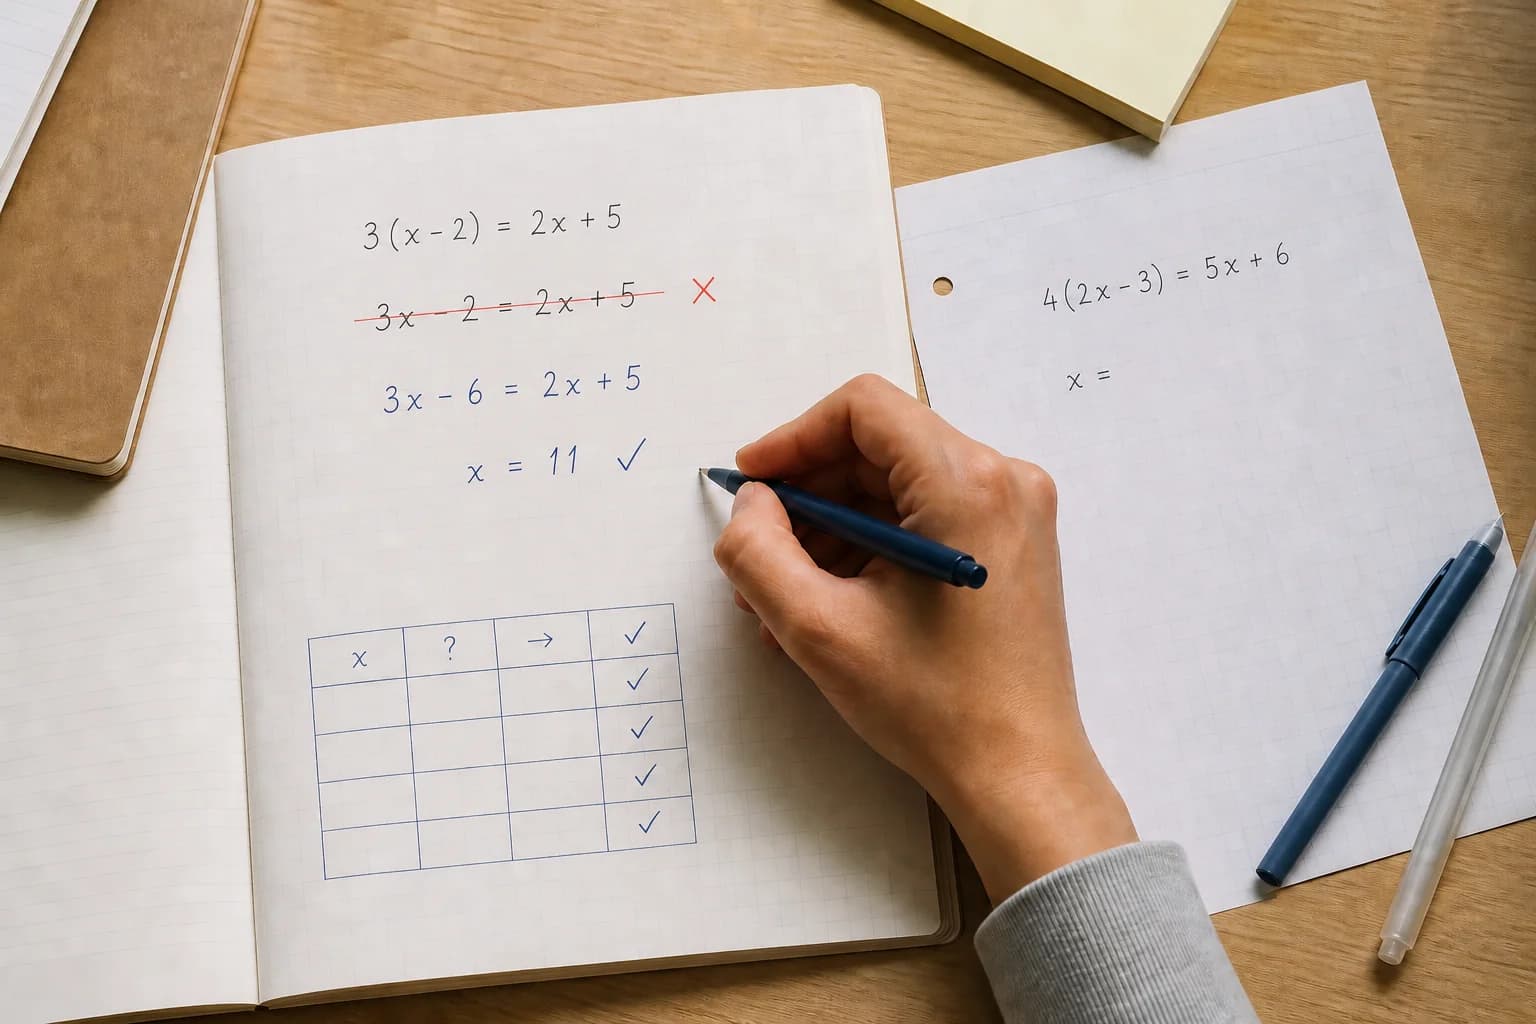 3(x - 2) = 2x + 5
3x - 2 = 2x + 5 ×
3x - 6 = 2x + 5
x = 11 ✓
x ? → ✓
✓
✓
✓
✓
4(2x - 3) = 5x + 6
x =